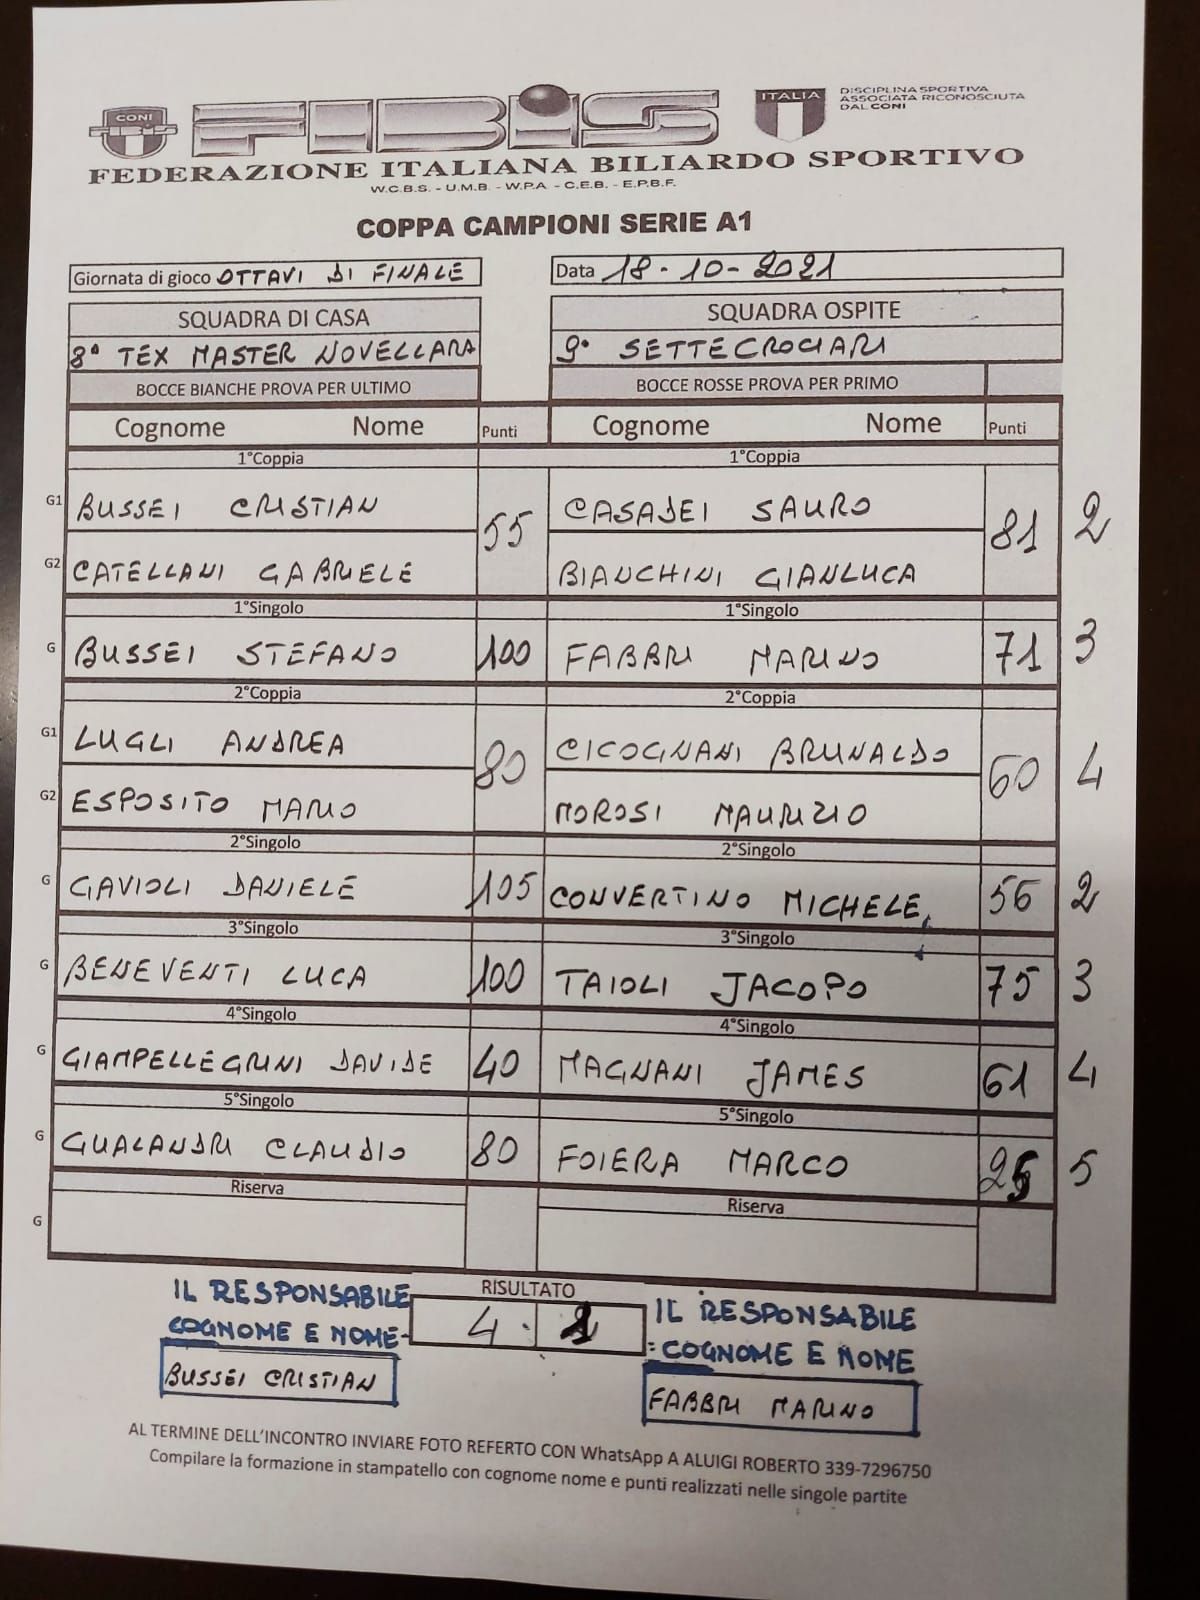 CONI
FIBiS
ITALIA
DISCIPLINA SPORTIVA
ASSOCIATA RICONOSCIUTA
DAL CONI
FEDERAZIONE ITALIANA BILIARDO SPORTIVO
W.C.B.S. - U.M.B. - W.P.A - C.E.B. - E.P.B.F.
COPPA CAMPIONI SERIE A1
Giornata di gioco OTTAVI DI FINALE Data 18-10-2021
SQUADRA DI CASA SQUADRA OSPITE
8ª TEX MASTER NOVELLARA 9° SETTECROCIARI
BOCCE BIANCHE PROVA PER ULTIMO BOCCE ROSSE PROVA PER PRIMO
Cognome Nome Punti Cognome Nome Punti
1°Coppia 1°Coppia
G1 BUSSEI CRISTIAN 55 CASADEI SAURO 81 2
G2 CATELLANI GABRIELE BIANCHINI GIANLUCA
1°Singolo 1°Singolo
G BUSSEI STEFANO 100 FABBRI MARINO 71 3
2°Coppia 2°Coppia
G1 LUGLI ANDREA 80 CICOGNANI BRUNALDO 60 4
G2 ESPOSITO MARIO MOROSI MAURIZIO
2°Singolo 2°Singolo
G GAVIOLI DANIELE 105 CONVERTINO MICHELE 56 2
3°Singolo 3°Singolo
G BENEVENTI LUCA 100 TAIOLI JACOPO 75 3
4°Singolo 4°Singolo
G GIAMPELLEGRINI DAVIDE 40 MAGNANI JAMES 61 4
5°Singolo 5°Singolo
G GUALANDRI CLAUDIO 80 FOIERA MARCO 5
Riserva Riserva
G
RISULTATO
IL RESPONSABILE IL RESPONSABILE
COGNOME E NOME- 4 - = COGNOME E NOME
BUSSEI CRISTIAN FABBRI MARINO
AL TERMINE DELL'INCONTRO INVIARE FOTO REFERTO CON WhatsApp A ALUIGI ROBERTO 339-7296750
Compilare la formazione in stampatello con cognome nome e punti realizzati nelle singole partite